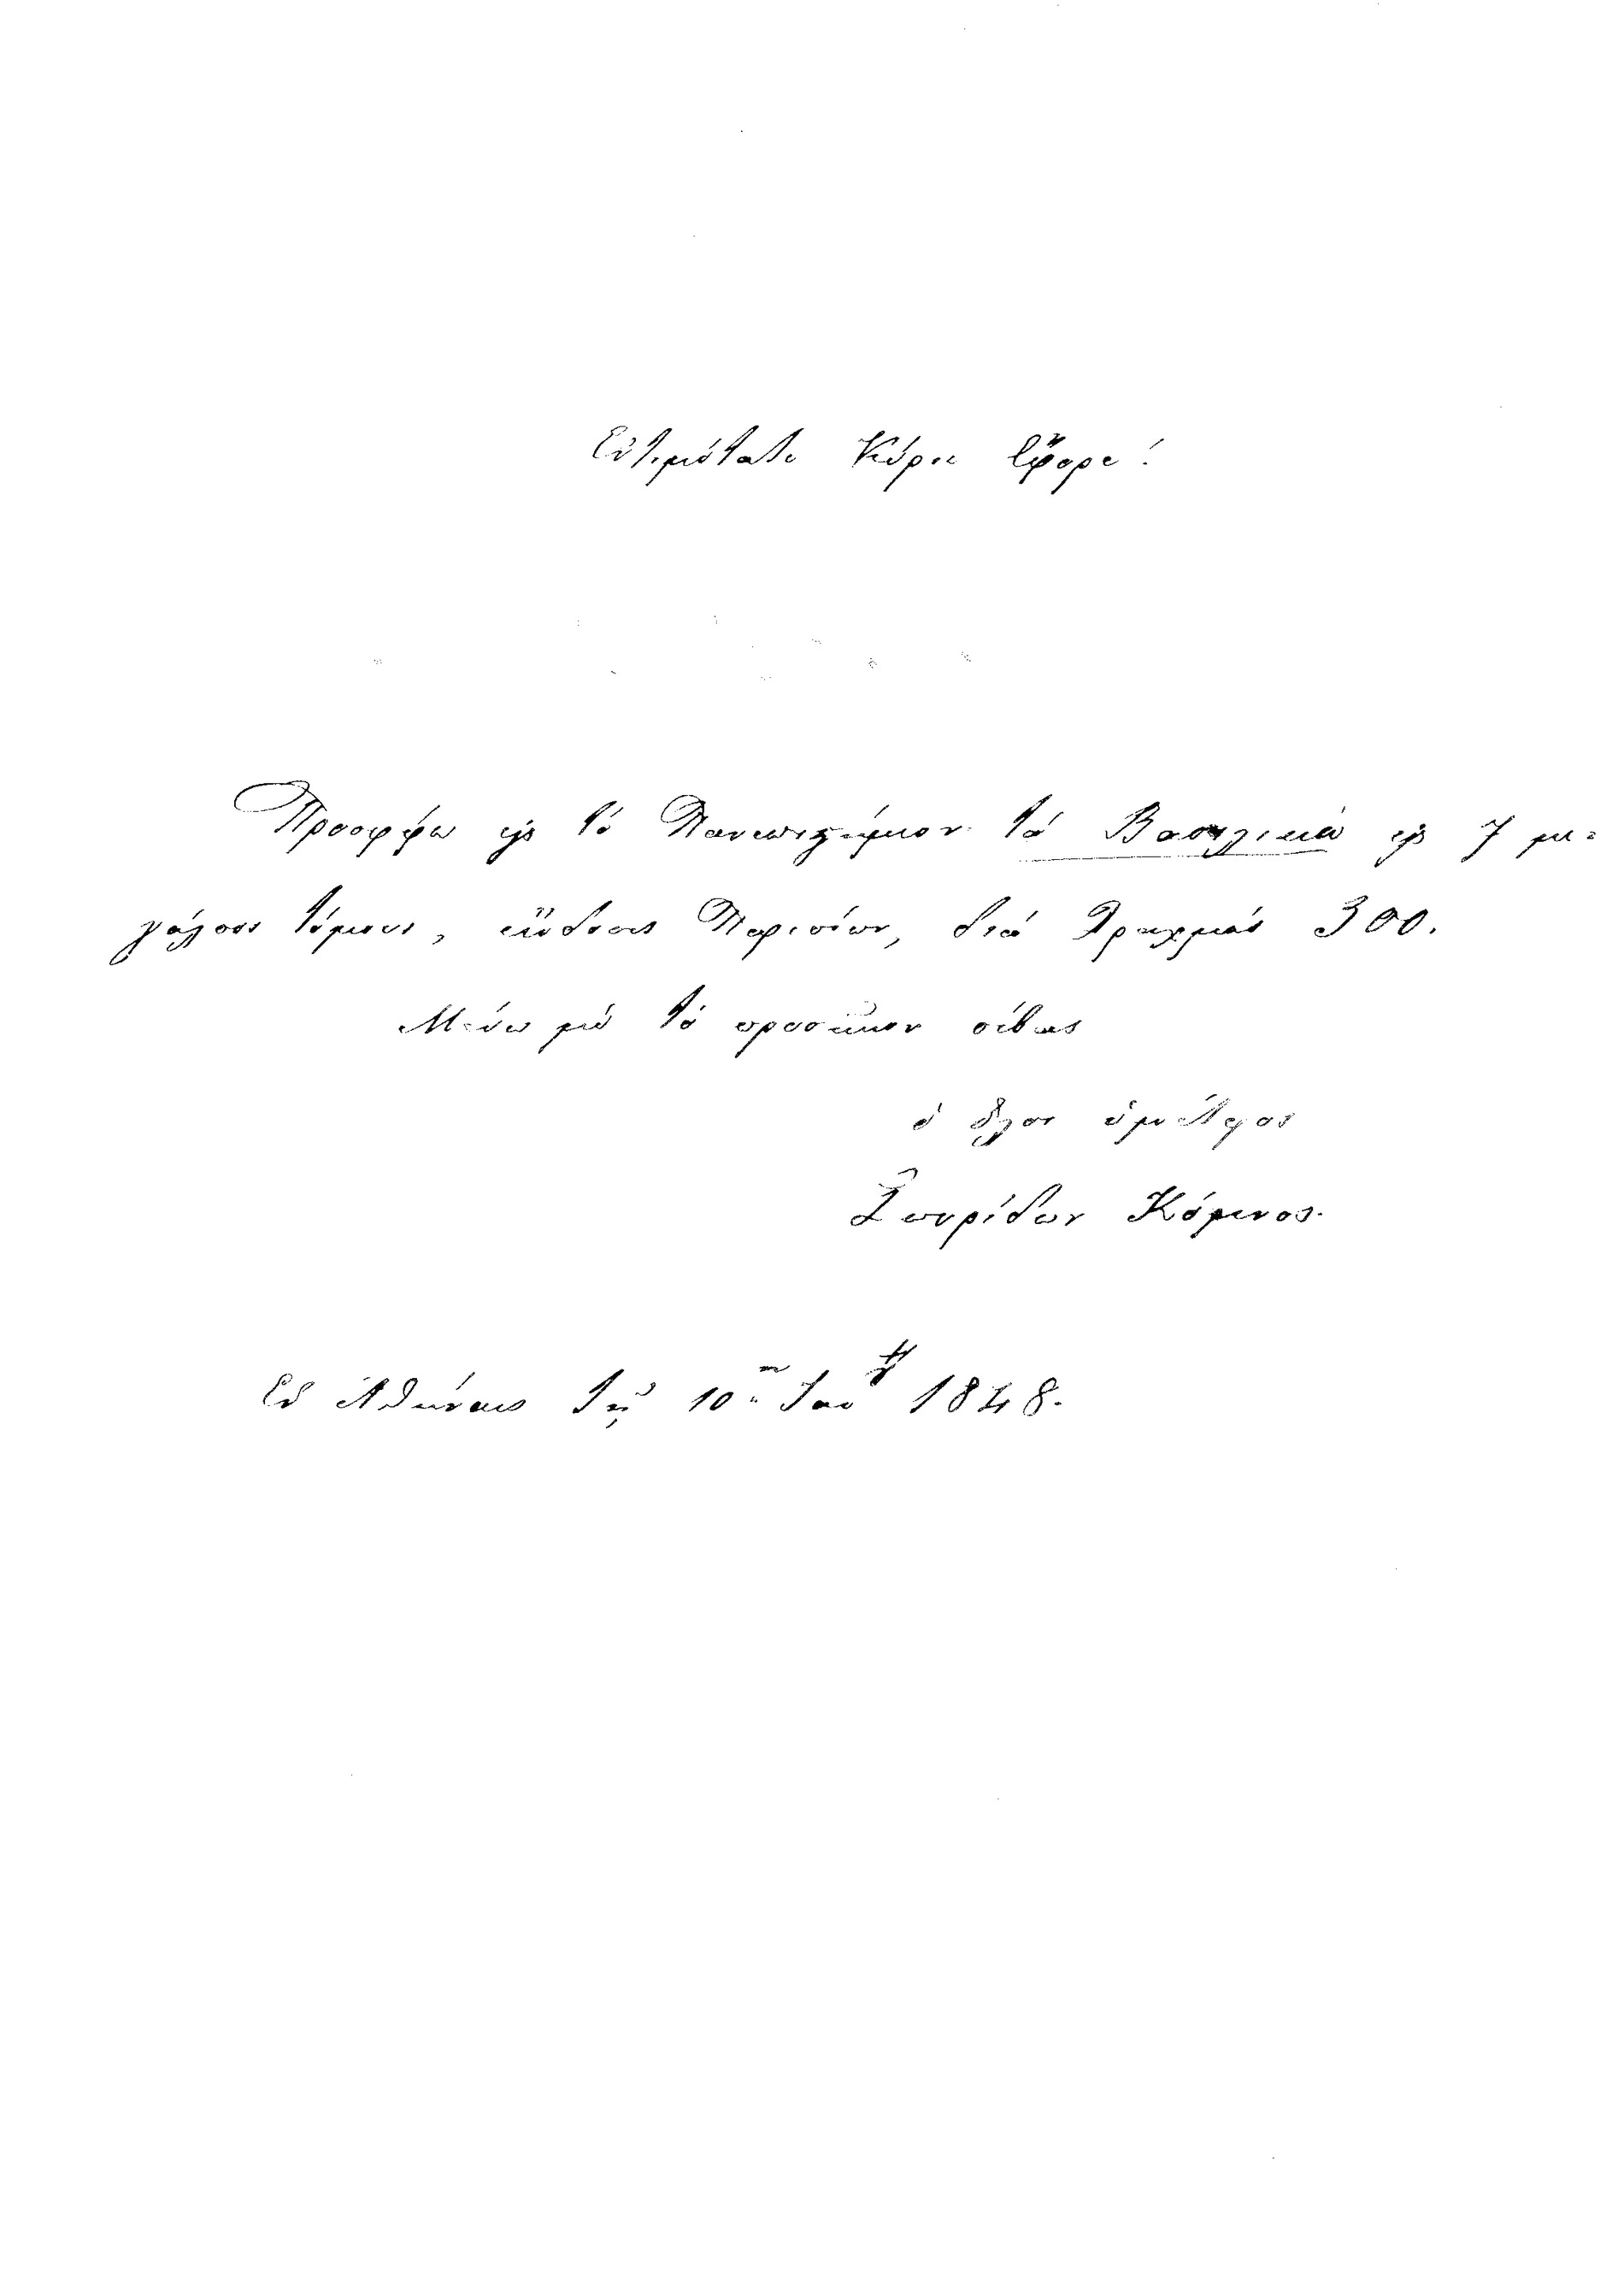 Εὐτιμότατε Κύριε Ἔφορε!
Προσφέρω εἰς τὸ Πανεπιστήμιον τὰ Βασιλικὰ εἰς 7 με=
γάλους τόμους, ἔκδοσις Παρισίων, διὰ Δραχμὰς 300.
Μένω μὲ τὸ προσῆκον σέβας
ὁ ὅλος ὑμέτερος
Σπυρίδων Κόμινος.
Ἐν Ἀθήναις τῇ 10ῃ 1848.